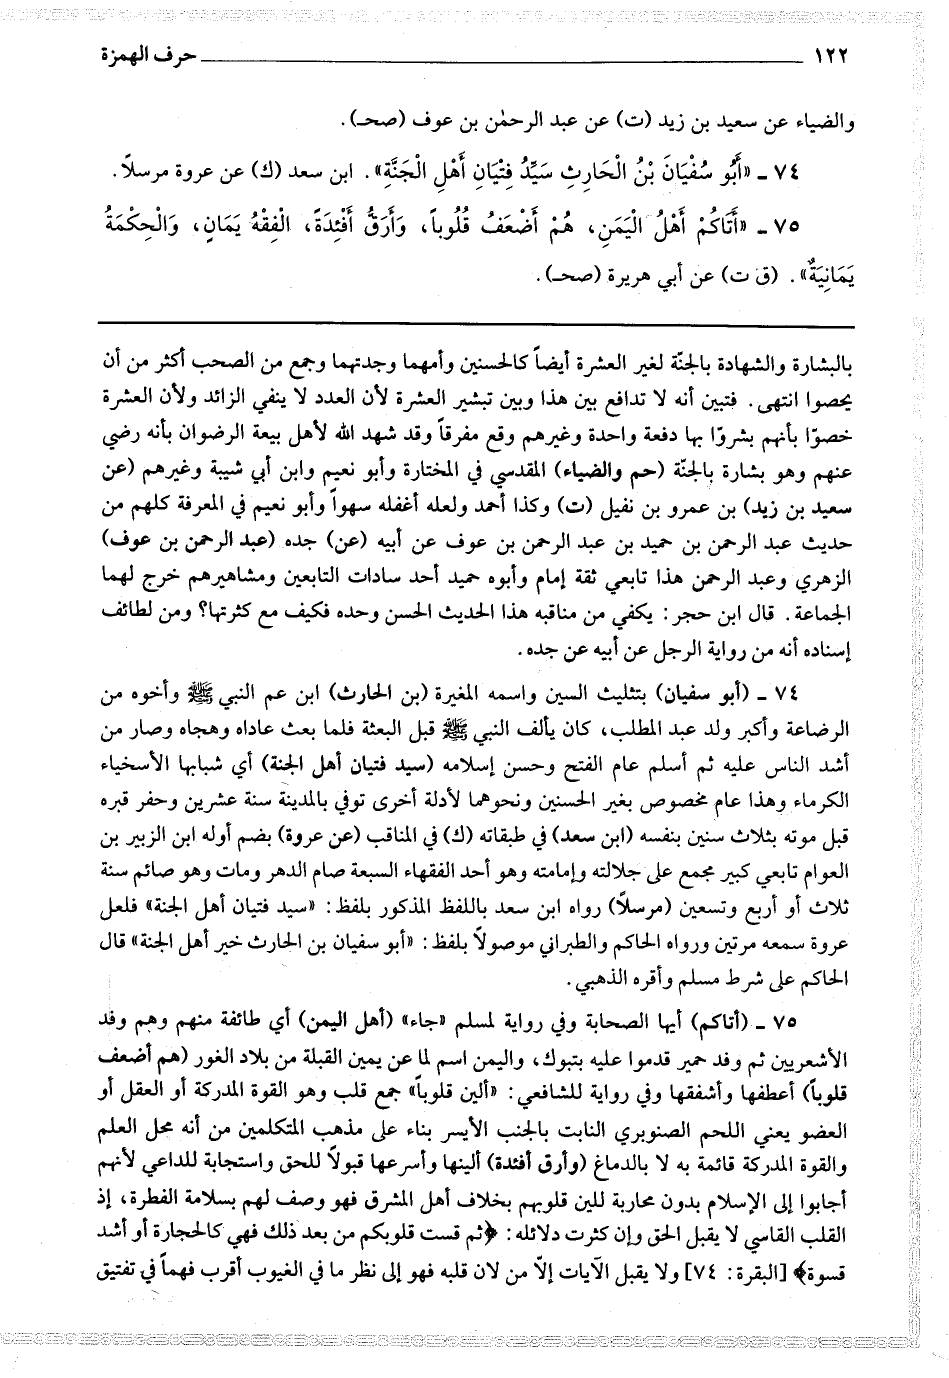 ١٢٢ حرف الهمزة
والضياء عن سعيد بن زيد (ت) عن عبد الرحمٰن بن عوف (صحـ).
٧٤ ـ «أَبُو سُفْيَانَ بْنُ الْحَارِثِ سَيِّدُ فِتْيَانِ أَهْلِ الْجَنَّةِ». ابن سعد (ك) عن عروة مرسلاً.
٧٥ ـ «أَتَاكُمْ أَهْلُ الْيَمَنِ، هُمْ أَضْعَفُ قُلُوباً، وَأَرَقُّ أَفْئِدَةً، الْفِقْهُ يَمَانٍ، وَالْحِكْمَةُ
يَمَانِيَةٌ». (ق ت) عن أبي هريرة (صحـ).
بالبشارة والشهادة بالجنّة لغير العشرة أيضاً كالحسنين وأمهما وجدتهما وجمع من الصحب أكثر من أن
يحصوا انتهى. فتبين أنه لا تدافع بين هذا وبين تبشير العشرة لأن العدد لا ينفي الزائد ولأن العشرة
خصوّا بأنهم بشروّا بها دفعة واحدة وغيرهم وقع مفرقاً وقد شهد الله لأهل بيعة الرضوان بأنه رضي
عنهم وهو بشارة بالجنّة (حم والضياء) المقدسي في المختارة وأبو نعيم وابن أبي شيبة وغيرهم (عن
سعيد بن زيد) بن عمرو بن نفيل (ت) وكذا أحمد ولعله أغفله سهواً وأبو نعيم في المعرفة كلهم من
حديث عبد الرحمن بن حميد بن عبد الرحمن بن عوف عن أبيه (عن) جده (عبد الرحمن بن عوف)
الزهري وعبد الرحمن هذا تابعي ثقة إمام وأبوه حميد أحد سادات التابعين ومشاهيرهم خرج لهما
الجماعة. قال ابن حجر: يكفي من مناقبه هذا الحديث الحسن وحده فكيف مع كثرتها؟ ومن لطائف
إسناده أنه من رواية الرجل عن أبيه عن جده.
٧٤ ـ (أبو سفيان) بتثليث السين واسمه المغيرة (بن الحارث) ابن عم النبي ﷺ وأخوه من
الرضاعة وأكبر ولد عبد المطلب، كان يألف النبي ﷺ قبل البعثة فلما بعث عاداه وهجاه وصار من
أشد الناس عليه ثم أسلم عام الفتح وحسن إسلامه (سيد فتيان أهل الجنة) أي شبابها الأسخياء
الكرماء وهذا عام مخصوص بغير الحسنين ونحوهما لأدلة أخرى توفي بالمدينة سنة عشرين وحفر قبره
قبل موته بثلاث سنين بنفسه (ابن سعد) في طبقاته (ك) في المناقب (عن عروة) بضم أوله ابن الزبير بن
العوام تابعي كبير مجمع على جلالته وإمامته وهو أحد الفقهاء السبعة صام الدهر ومات وهو صائم سنة
ثلاث أو أربع وتسعين (مرسلاً) رواه ابن سعد باللفظ المذكور بلفظ: «سيد فتيان أهل الجنة» فلعل
عروة سمعه مرتين ورواه الحاكم والطبراني موصولاً بلفظ: «أبو سفيان بن الحارث خير أهل الجنة» قال
الحاكم على شرط مسلم وأقره الذهبي.
٧٥ ـ (أتاكم) أيها الصحابة وفي رواية لمسلم «جاء» (أهل اليمن) أي طائفة منهم وهم وفد
الأشعريين ثم وفد حمير قدموا عليه بتبوك، واليمن اسم لما عن يمين القبلة من بلاد الغور (هم أضعف
قلوباً) أعطفها وأشفقها وفي رواية للشافعي: «ألين قلوباً» جمع قلب وهو القوة المدركة أو العقل أو
العضو يعني اللحم الصنوبري النابت بالجنب الأيسر بناء على مذهب المتكلمين من أنه محل العلم
والقوة المدركة قائمة به لا بالدماغ (وأرق أفئدة) ألينها وأسرعها قبولاً للحق واستجابة للداعي لأنهم
أجابوا إلى الإسلام بدون محاربة للين قلوبهم بخلاف أهل المشرق فهو وصف لهم بسلامة الفطرة، إذ
القلب القاسي لا يقبل الحق وإن كثرت دلائله: ﴿ثم قست قلوبكم من بعد ذلك فهي كالحجارة أو أشد
قسوة﴾ [البقرة: ٧٤] ولا يقبل الآيات إلاّ من لان قلبه فهو إلى نظر ما في الغيوب أقرب فهماً في تفتيق